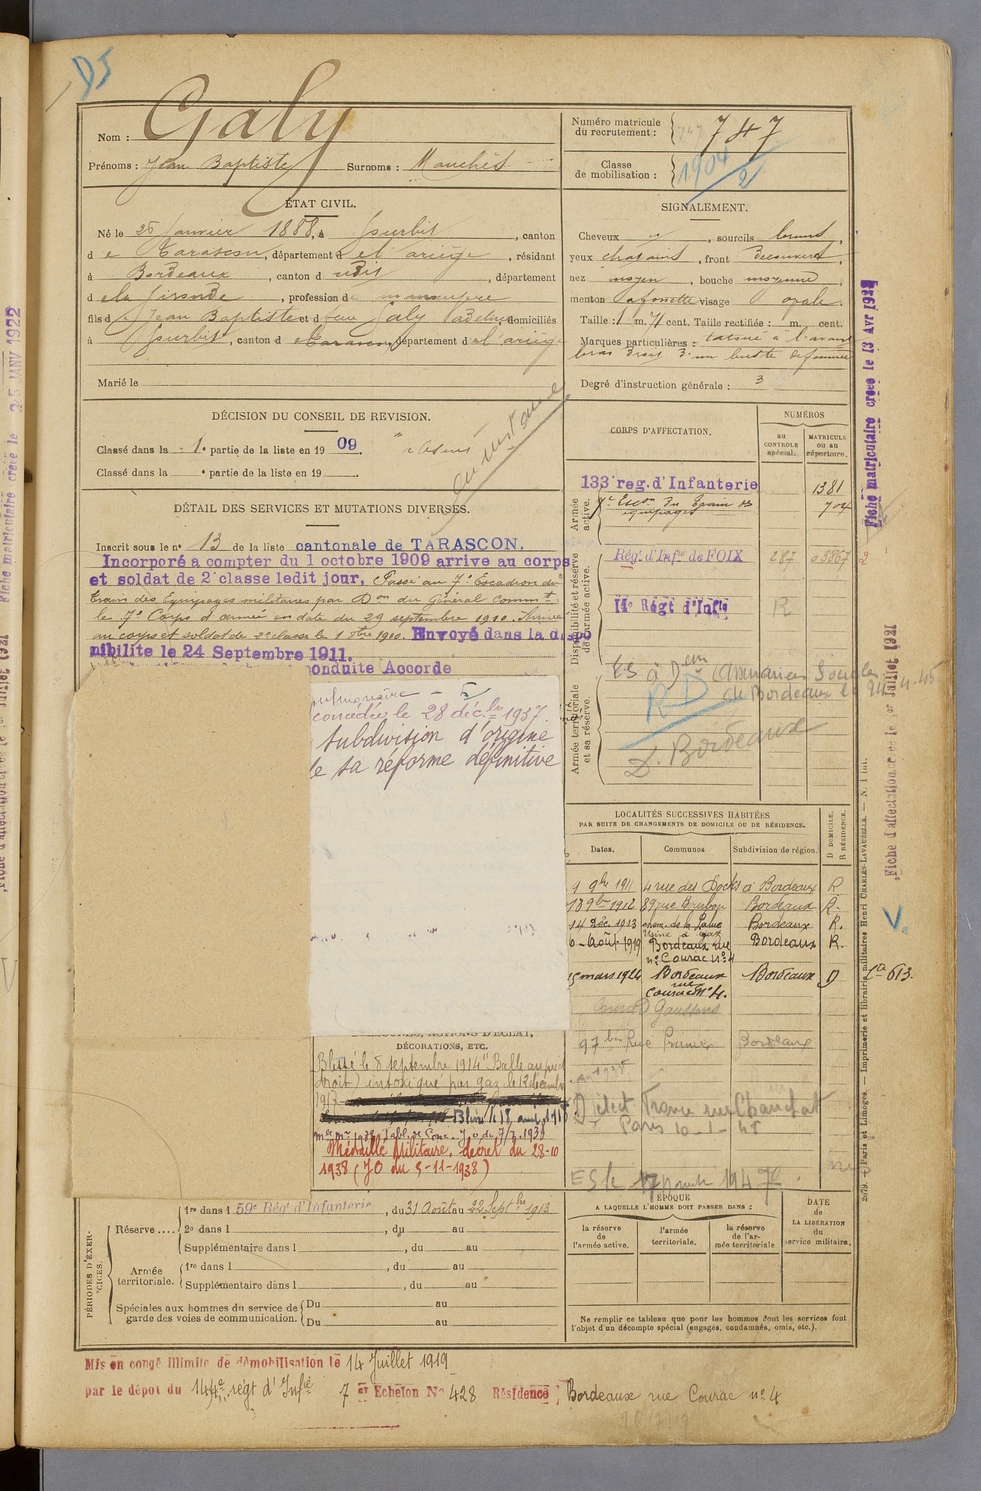 D5
Nom : Galy
Prénoms : Jean Baptiste Surnoms : Manchés
Numéro matricule du recrutement : 747
Classe de mobilisation : 1904/2
ÉTAT CIVIL.
Né le 25 Janvier 1888, à Gourbit, canton
de Tarascon, département de l'ariège, résidant
à Bordeaux, canton dudit, département
de la Gironde, profession de manoeuvre
fils de Jean Baptiste et de feu Galy Adeline, domiciliés
à Gourbit, canton de Tarascon, département de l'ariège
Marié le
SIGNALEMENT.
Cheveux y, sourcils bruns,
yeux chatains, front découvert,
nez moyen, bouche moyenne
menton à fossette visage ovale.
Taille : 1 m. 71 cent. Taille rectifiée : m. cent.
Marques particulières : tatoué à l'avant
bras droit d'un buste de femme
Degré d'instruction générale : 3
DÉCISION DU CONSEIL DE REVISION.
Classé dans la 1e partie de la liste en 1909.
Classé dans la e partie de la liste en 19
DÉTAIL DES SERVICES ET MUTATIONS DIVERSES.
Inscrit sous le no 13 de la liste cantonale de TARASCON.
Incorporé a compter du 1 octobre 1909 arrive au corps
et soldat de 2e classe ledit jour, Passé au 7e Escadron du
train des Equipages militaires par Don du Général Commt
le 7e Corps d'armée en date du 29 septembre 1910. Arrivé
au corps et soldat de 2e classe le 1 8bre 1910. Envoyé dans la dispo
nibilite le 24 Septembre 1911.
onduite Accorde
concedée le 28 déc.bre 1937.
subdivision d'origine
de sa réforme définitive
CORPS D'AFFECTATION.
NUMÉROS
au CONTROLE spécial.
MATRICULE ou au répertoire.
Armée active.
133e reg. d'Infanterie 1381
7e Escon du Train des équipages 704
Disponibilité et réserve de l'armée active.
Régt d'Infie de FOIX 287 03867
14e Régt d'Infie R
Armée territoriale et sa réserve.
de Bordeaux le 24-4-45
RD
D. Bordeaux
LOCALITÉS SUCCESSIVES HABITÉES
PAR SUITE DE CHANGEMENTS DE DOMICILE OU DE RÉSIDENCE.
Dates. Communes Subdivision de région. D DOMICILE. R RÉSIDENCE.
9 9bre 1911 4 rue des Docks à Bordeaux R
18 9bre 1912 Bordeaux R.
14 Déc. 1913 Usine à gaz Bordeaux R.
6 Août 1919 Bordeaux rue Courac no 4 Bordeaux R.
15 mars 1924 Bordeaux rue Courac No 4. Bordeaux D
97 bis Rue Prunier Bordeaux
Paris 10-1-45
DÉCORATIONS, ETC.
Blessé le 8 septembre 1914 "Balle au pied
droit) intoxiqué par gaz le 12 décembre
1917
Blessé le 18 avril 1918
Médaille Militaire, décret du 28-10
1938 (JO du 5-11-1938)
PÉRIODES D'EXERCICES.
Réserve .... 1re dans l 59e Rég. d'Infanterie, du 31 Août au 22 Septbre 1913
2e dans l , du au
Supplémentaire dans l , du au
Armée territoriale. 1re dans l , du au
Supplémentaire dans l , du au
Spéciales aux hommes du service de garde des voies de communication. Du au
Du au
ÉPOQUE
A LAQUELLE L'HOMME DOIT PASSER DANS :
la réserve de l'armée active.
l'armée territoriale.
la réserve de l'armée territoriale
DATE de LA LIBÉRATION du service militaire.
Ne remplir ce tableau que pour les hommes dont les services font
l'objet d'un décompte spécial (engagés, condamnés, omis, etc.).
Mis en congé illimité de démobilisation le 14 Juillet 1919
par le dépot du 144e régt d'Infie 7e Echelon No 428 Résidence Bordeaux rue Courac no 4
Fiche matriculaire créée le 13 Avr 1922
Fiche d'affectation créée le 1er Juillet 1921
V.
Fiche matriculaire créée le 25 JANV 1922
Paris et Limoges. — Imprimerie et librairie militaires Henri CHARLES-LAVAUZELLE.